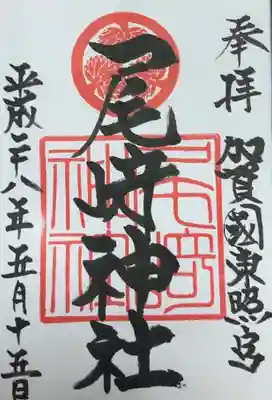 奉拝
加賀國東照宮
尾崎神社
尾崎
神社
平成二十八年五月十五日